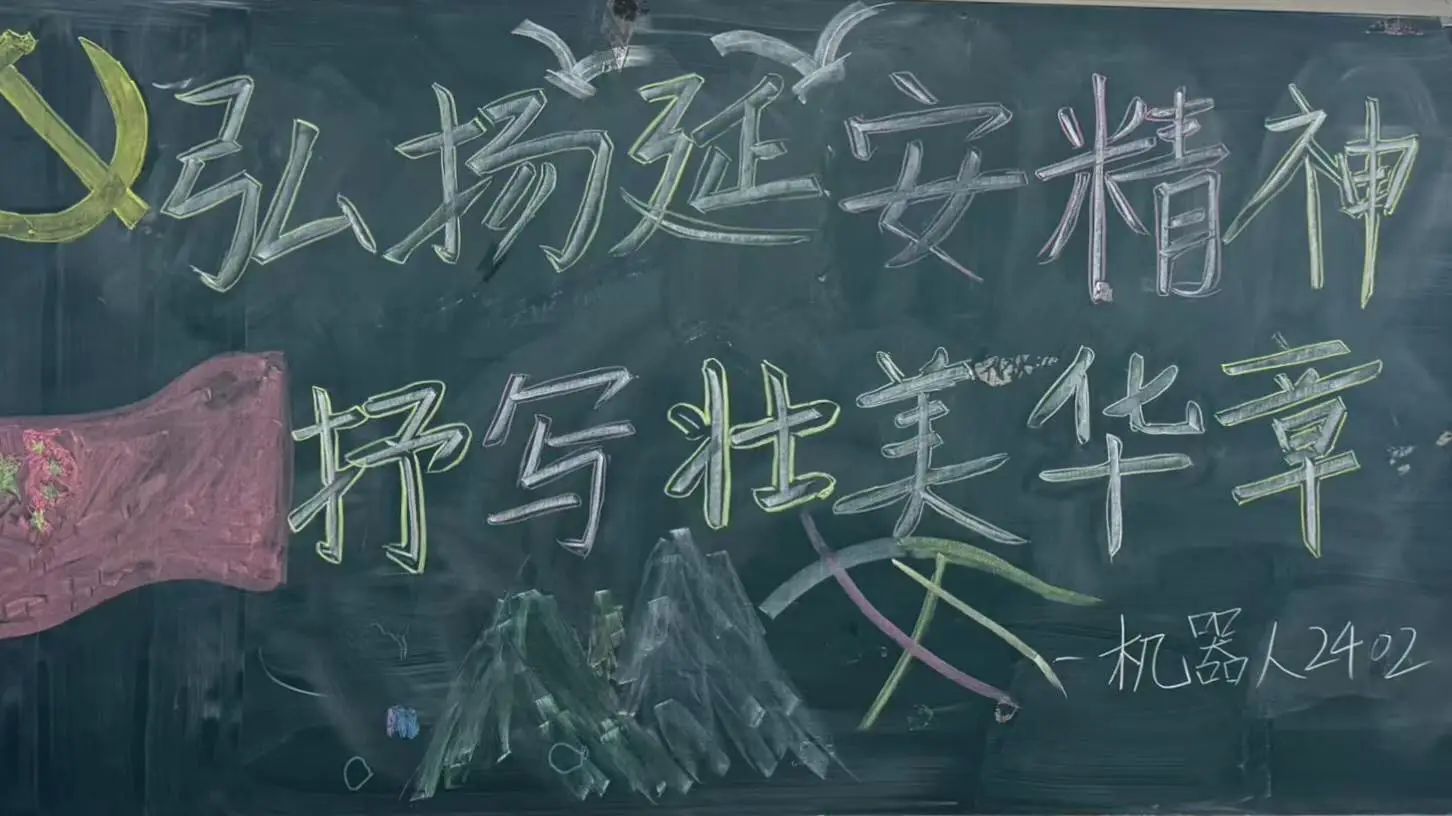 弘扬延安精神
抒写壮美华章
一机器人2402